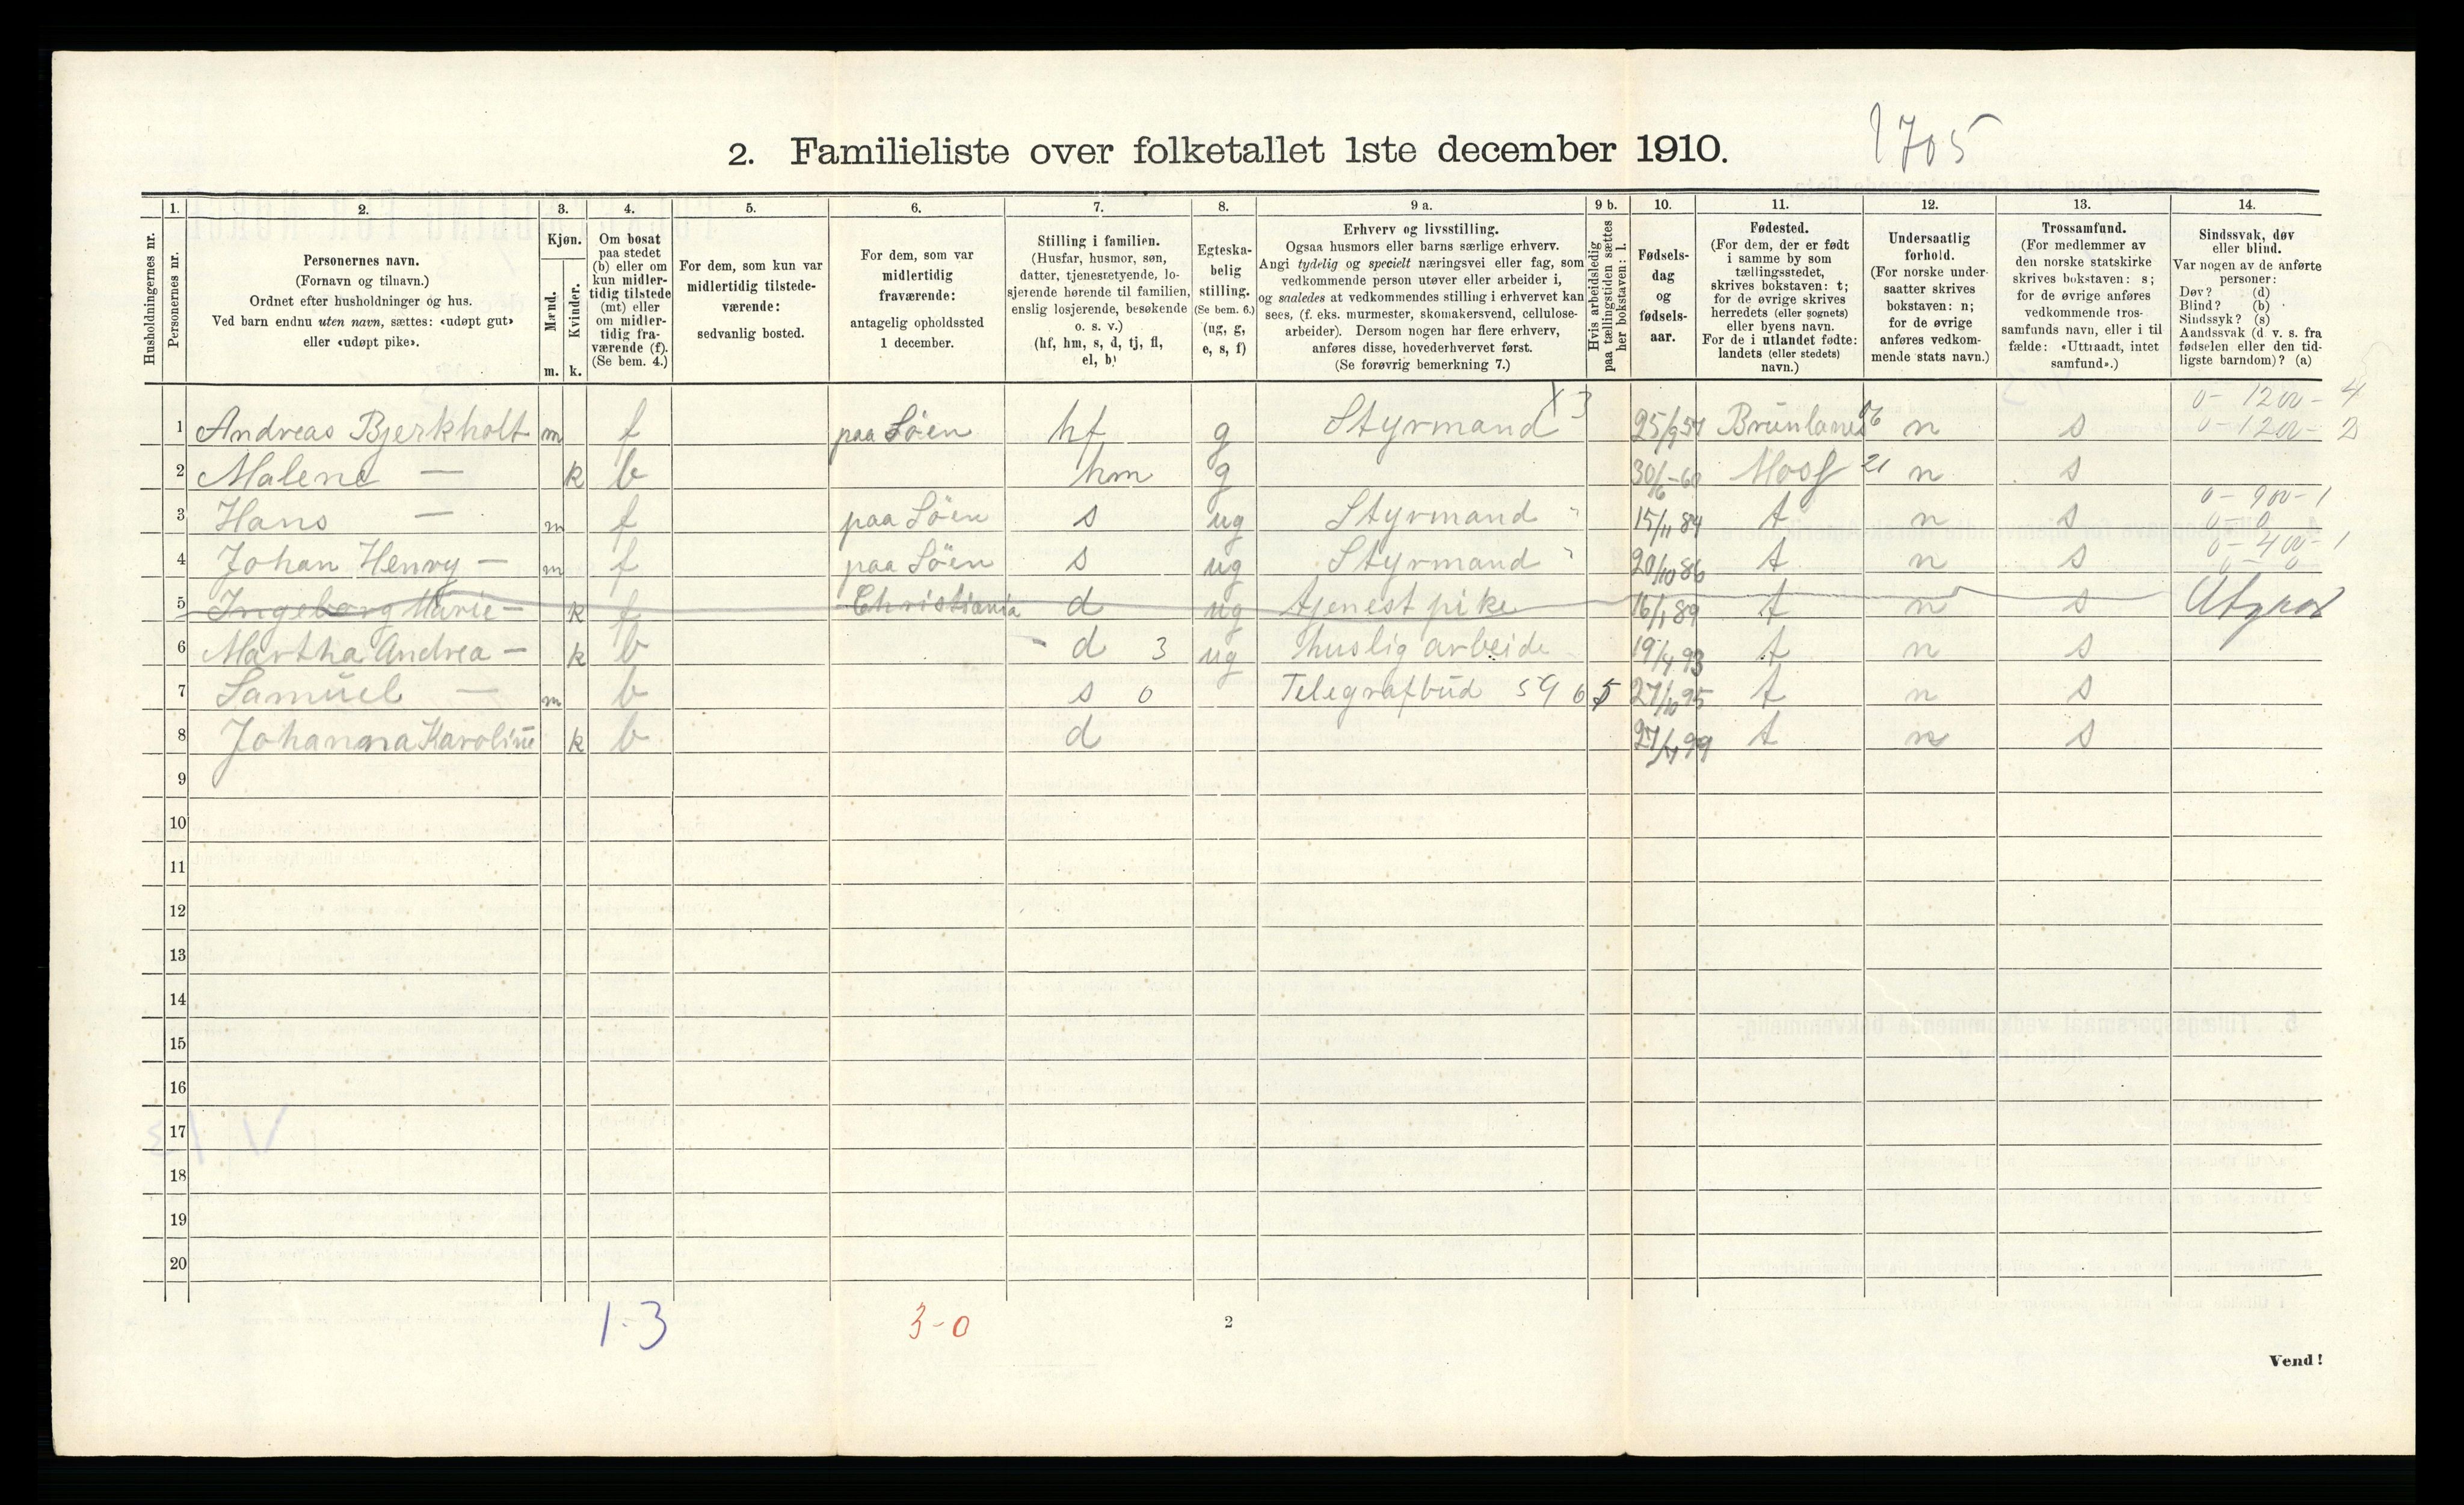 2. Familieliste over folketallet 1ste december 1910.
1705
1. 2. 3. 4. 5. 6. 7. 8. 9 a. 9 b. 10. 11. 12. 13. 14.
Husholdningernes nr.
Personernes nr.
Personernes navn.
(Fornavn og tilnavn.)
Ordnet efter husholdninger og hus.
Ved barn endnu uten navn, sættes: «udøpt gut»
eller «udøpt pike».
Kjøn.
Mænd.
Kvinder.
m. k.
Om bosat
paa stedet
(b) eller om
kun midler-
tidig tilstede
(mt) eller
om midler-
tidig fra-
værende (f).
(Se bem. 4.)
For dem, som kun var
midlertidig tilstede-
værende:
sedvanlig bosted.
For dem, som var
midlertidig
fraværende:
antagelig opholdssted
1 december.
Stilling i familien.
(Husfar, husmor, søn,
datter, tjenestetyende, lo-
sjerende hørende til familien,
enslig losjerende, besøkende
o. s. v.)
(hf, hm, s, d, tj, fl,
el, b)
Egteska-
belig
stilling.
(Se bem. 6.)
(ug, g,
e, s, f)
Erhverv og livsstilling.
Ogsaa husmors eller barns særlige erhverv.
Angi tydelig og specielt næringsvei eller fag, som
vedkommende person utøver eller arbeider i,
og saaledes at vedkommendes stilling i erhvervet kan
sees, (f. eks. murmester, skomakersvend, cellulose-
arbeider). Dersom nogen har flere erhverv,
anføres disse, hovederhvervet først.
(Se forøvrig bemerkning 7.)
Hvis arbeidsledig
paa tællingstiden sættes
her bokstaven: l.
Fødsels-
dag
og
fødsels-
aar.
Fødested.
(For dem, der er født
i samme by som
tællingsstedet,
skrives bokstaven: t;
for de øvrige skrives
herredets (eller sognets)
eller byens navn.
For de i utlandet fødte:
landets (eller stedets)
navn.)
Undersaatlig
forhold.
(For norske under-
saatter skrives
bokstaven: n;
for de øvrige
anføres vedkom-
mende stats navn.)
Trossamfund.
(For medlemmer av
den norske statskirke
skrives bokstaven: s;
for de øvrige anføres
vedkommende tros-
samfunds navn, eller i til
fælde: «Uttraadt, intet
samfund».)
Sindssvak, døv
eller blind.
Var nogen av de anførte
personer:
Døv? (d)
Blind? (b)
Sindssyk? (s)
Aandssvak (d v. s. fra
fødselen eller den tid-
ligste barndom)? (a)
X 3 0 - 1200 - 4
1 Andreas Bjerkholt m f paa Söen hf g Styrmand 25/9 57 Brunlanes 06 n s 0 - 1200 - 2
2 Malene — k b hm g 30/6 - 60 Moss 21 n s
0 - 900 - 1
3 Hans — m f paa Söen s ug Styrmand " 15/11 84 t n s 0 - 0
0 - 400 - 1
4 Johan Henry — m f paa Söen s ug Styrmand " 20/10 86 t n s 0 - 0
5 Ingeborg Marie — k f Christiania d ug tjenestpike 16/1 89 t n s Utgaar
6 Martha Andrea — k b - d 3 ug huslig arbeide 19/4 93 t n s
7 Samuel — m b s 0 Telegrafbud 59 6 5 27/10 95 t n s
8 Johanna Karoline k b d 27/7 99 t n s
9
10
11
12
13
14
15
16
17
18
19
20
1-3
3-0
2
Vend!